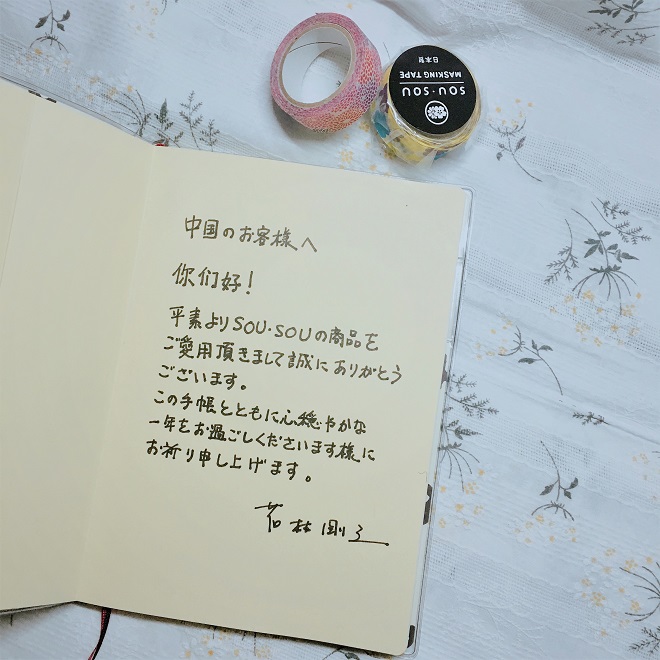 SOU・SOU
MASKING TAPE
日本製
中国のお客様へ
你们好!
平素よりSOU・SOUの商品を
ご愛用頂きまして誠にありがとう
ございます。
この手帳とともに心穏やかな
一年をお過ごしくださいます様に
お祈り申し上げます。
若林剛之